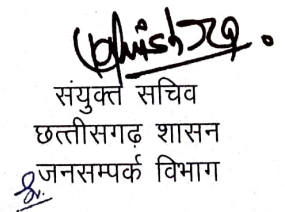 संयुक्त सचिव
छत्तीसगढ़ शासन
जनसम्पर्क विभाग